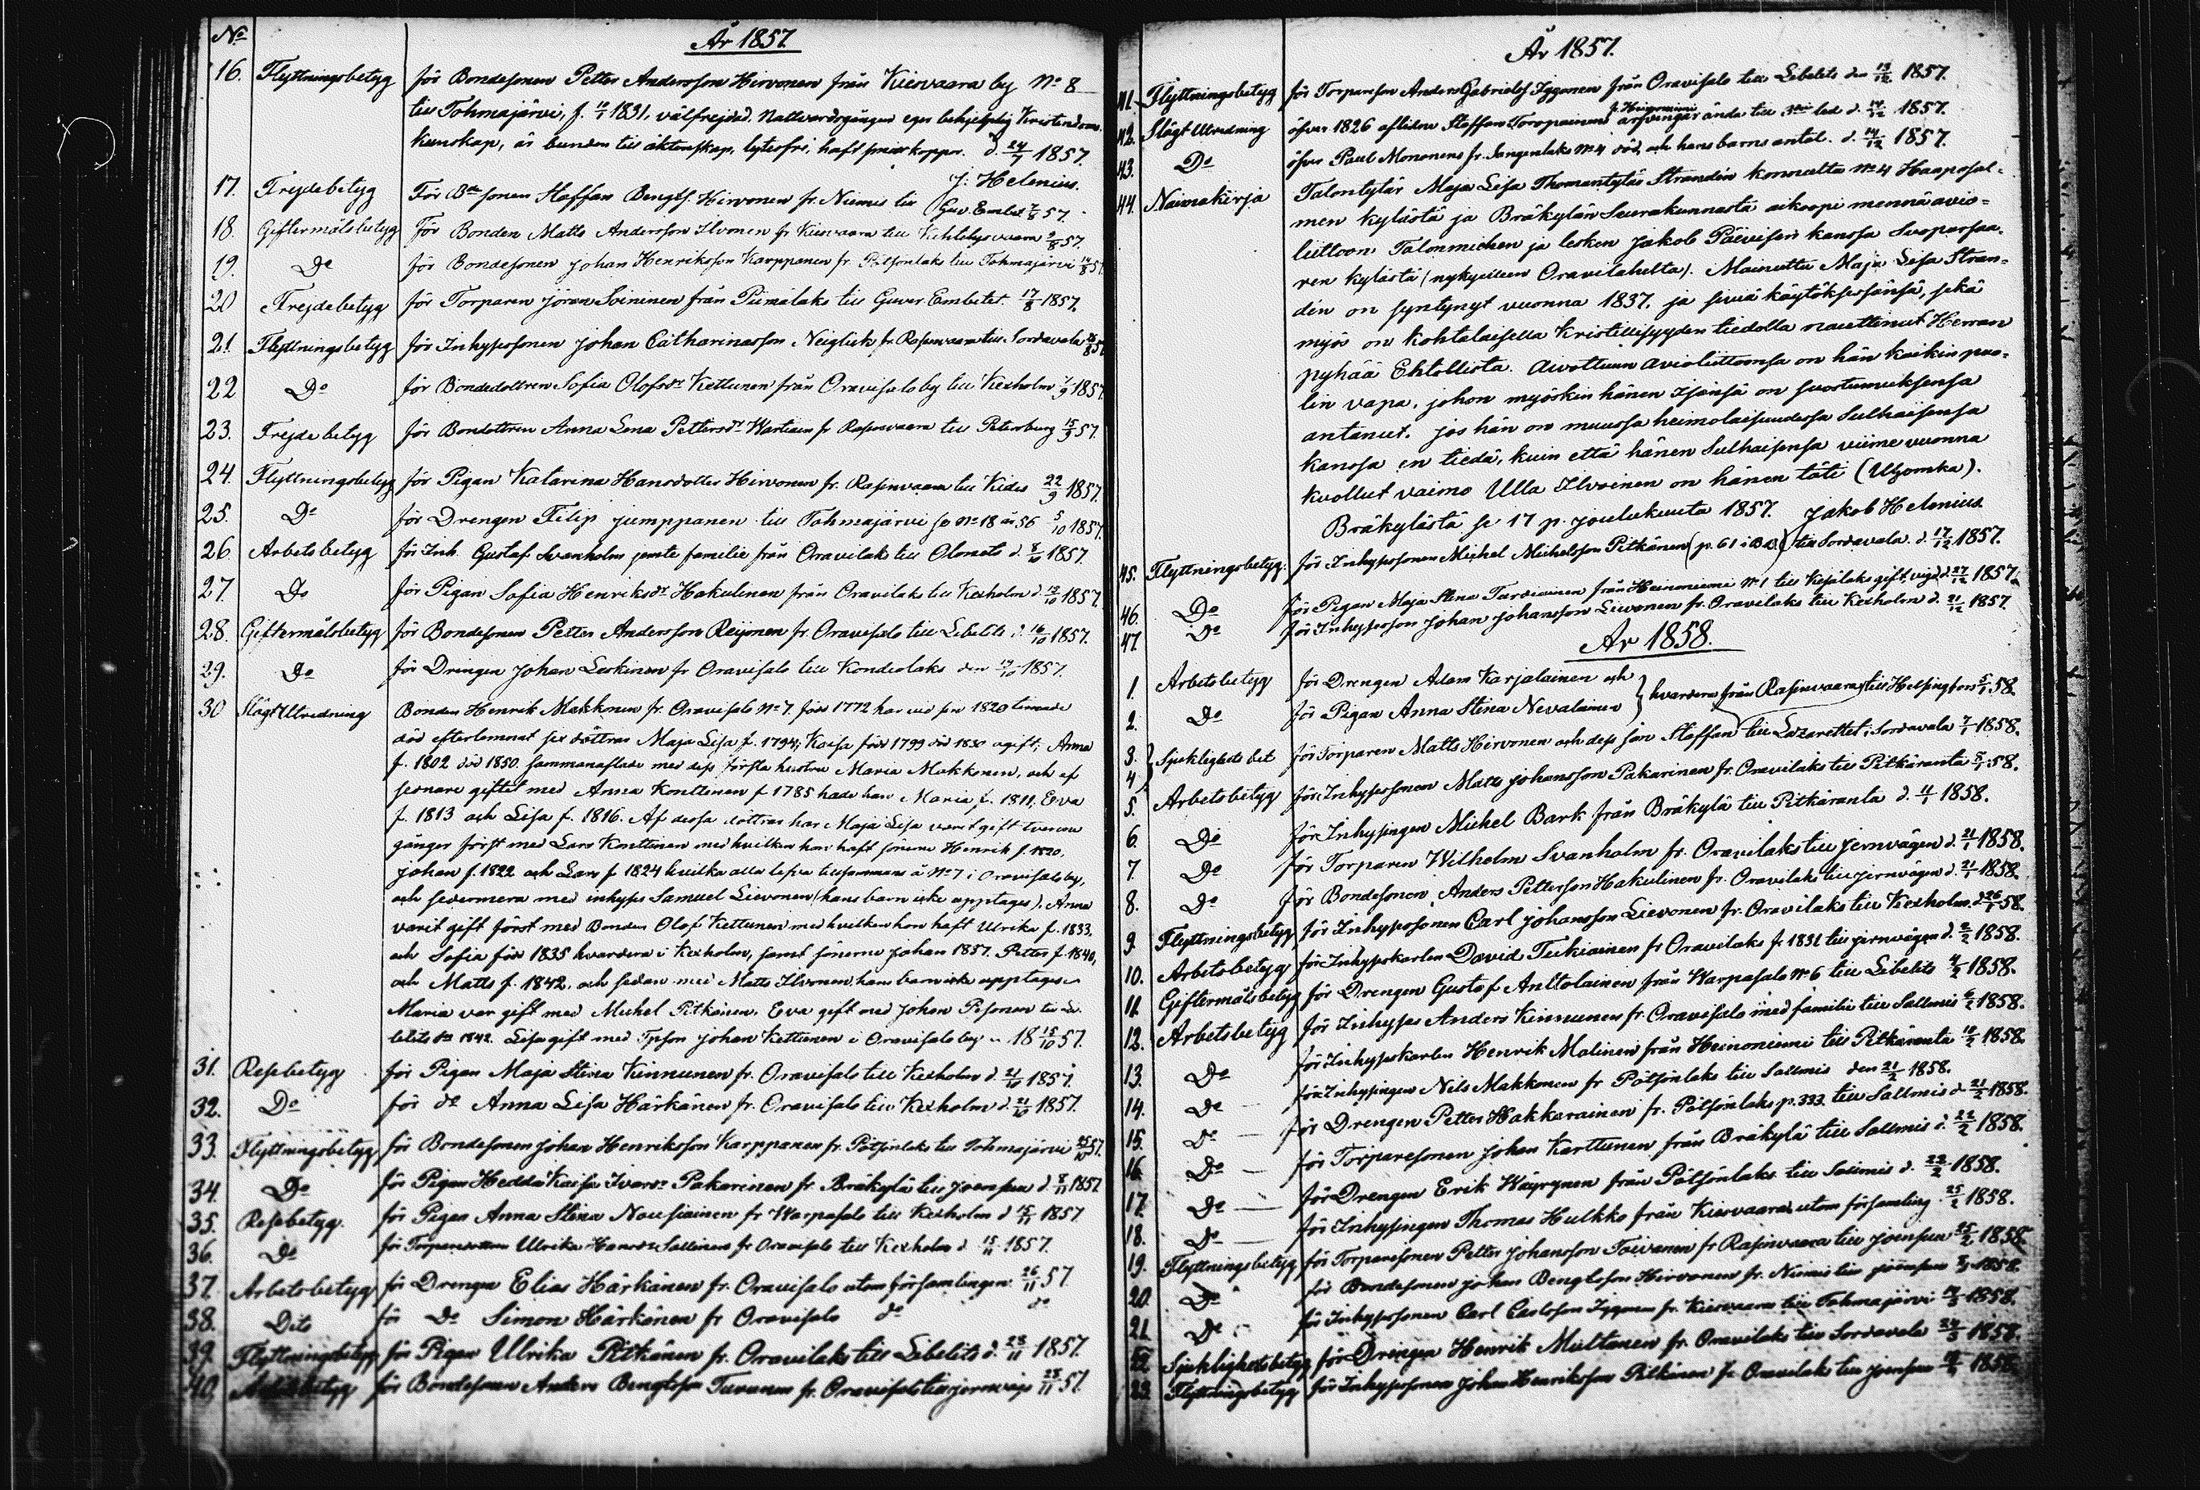 No
År 1857
16. Flyttningsbetyg för Bondesonen Petter Andersson Hirvonen från Kiesvaara by No 8
till Tohmajärvi, f. 1831, välfrejdad. Nattvardsgången eger Kristendoms
kunskap, är bunden till äktenskap, lytesfri, haft koppor. d. 24/7 1857.
J. Helenius.
17. Frejdebetyg För Bde sonen Staffan Bengts. Hirvonen fr. Niemis till Guv. Embet 57.
18. Giftermålsbetyg För Bonden Matts Andersson Ilvonen fr Kiesvaara till 57.
19. Do för Bondesonen Johan Henriksson Karppanen fr. Pötsönlaks till Tohmajärvi 57
20 Frejdebetyg för Torparen Jöran Soininen från Piimälaks till Guver. Embetet 17/8 1857.
21 Flyttningsbetyg för Inhysessonen Johan Catharinasson Neiglick fr. Rasinvaara till Sordavala 57
22 Do för Bondedottren Sofia Olofsdr Kettunen från Oravisalo by till Kexholm 1/9 1857
23. Frejdebetyg för Bondottren Anna Lena Pettersdr fr Rasinvaara till Petersburg 57.
24. Flyttningsbetyg för Pigan Katarina Hansdotter Hirvonen fr. Rasinvaara till Kides 22/9 1857.
25. Do för Drengen Filip Jumppanen till Tohmajärvi se No 18 år 56 5/10 1857.
26 Arbetsbetyg för Inh. Gustaf Svanholm jemte familie från Oravilaks till Olonets d. 1857.
27. Do för Pigan Sofia Henriksdr Hakulinen från Oravilaks till Kexholm d. 1857.
28. Giftermålsbetyg för Bondesonen Petter Andersson Reijonen fr. Oravisalo till Libelits d. 16/10 1857.
29. Do för Drengen Johan Leskinen fr Oravisalo till Kondiolaks den 1857.
30 Slägt Utredning Bonden Henrik Makkonen fr. Oravisalo No 7. född 1772 har vid sin 1820 timade
död efterlemnat sex döttrar Maja Lisa f. 1794, Kaisa född 1799 död 1830 ogift, Anna
f. 1802 död 1850 sammanaflade med dess första hustru Maria Makkonen, och af
sednare giftet med Anna Knuttinen f 1785 hade han Maria f. 1811, Eva
f. 1813 och Lisa f. 1816. Af dessa döttrar har Maja Lisa varit gift tvenne
gånger först med Lars Knuttinen med hvilken hon haft sönerne Henrik f. 1820,
Johan f. 1822 och Lars f 1824 hvilka alla lefva tillsammans å No 7 i Oravisalo by,
och sedermera med inhyses Samuel Lievonen (hans barn icke upptages), Anna
varit gift först med Bonden Olof Kettunen med hvilken hon haft Ulrika f. 1833,
och Sofia född 1835 hvardera i Kexholm, samt sönerne Johan 1857. Petter f 1840,
och Matts f. 1842, och sedan med Matts Ilvonen, hans barn icke upptages
Maria var gift med Michel Pitkänen. Eva gift med Johan Pesonen till Li-
belits 1842. Lisa gift med Tpson Johan Kettunen i Oravisalo by 18 15/10 57.
31. Resebetyg för Pigan Maja Stina Kinnunen fr. Oravisalo till Kexholm d. 21/10 1857.
32. Do för do Anna Lisa Härkänen fr. Oravisalo till Kexholm d. 21/10 1857.
33. Flyttningsbetyg för Bondesonen Johan Henriksson Karppanen fr. Pötsönlaks till Tohmajärvi 57.
34. Do för Pigan Hedda Kaisa Ivarsdr Pakarinen fr. Bräkylä till Joensuu d. 1857
35. Resebetyg. för Pigan Anna Stina Nousiainen fr Varpasalo till Kexholm d 15/11 1857
36. Do för Ulrika Hansdr Sallinen fr Oravisalo till Kexholm d 15/11 1857.
37. Arbetsbetyg för Drengen Elias Härkänen fr. Oravisalo utom församlingen 26/11 57.
38. Dito för Do Simon Härkänen fr Oravisalo do do
39. Flyttningsbetyg för Pigan Ulrika Pitkänen fr. Oravilaks till Libelits d. 28/11 1857.
40. Arbetsbetyg för Bondesonen Anders Bengtsson Turunen fr. Oravisalo till jernväg 28/11 57.
År 1857.
41. Flyttningsbetyg för Torparson Anders Gabrielss Iggonen från Oravisalo till Libelits den 13/12 1857.
42. Slägt Utredning öfver 1826 aflidne Staffan Toropainens i Heinoniemi arfvingar ända till led d. 14/12 1857.
43. Do öfver Paul Mononens fr. Jangenlaks No 4 död, och hans barns antal. d. 14/12 1857.
44. Naimakirja Talontytär Maja Lisa Thomantytär Strandin konnulta No 4 Haapasal-
men kylästä ja Bräkylän Seurakunnasta aikoopi mennä avio-
liittoon Talonmiehen ja lesken Jakob Päiviisen kanssa Suoparsaa-
ren kylästä (nykyisten Oravilahelta). Mainittu Maja Lisa Stran-
din on syntynyt vuonna 1837, ja siviä käytöksessänsä, sekä
myös on kohtalaisella kristillisyyden tiedolla nauttinut Herran
pyhää Ehtollista. Aivottuun avioliittoonsa on hän kaikin puo-
lin vapa, johon myöskin hänen Isänsä on suostumuksensa
antanut. Jos hän on muussa heimolaisuudessa Sulhaisensa
kanssa en tiedä, kuin että hänen Sulhaisensa viime vuonna
kuollut vaimo Ulla Ilvoinen on hänen täti (Ulyomka).
Bräkylästä se 17 p. joulukuuta 1857. Jakob Helenius.
45. Flyttningsbetyg. för Inhysessonen Michel Michelsson Pitkänen (p. 61 i B.B.) till Sordavala d. 17/12 1857.
46. Do för Pigan Maja Stina Tarviainen från Heinoniemi No 1 till Kesälaks gift vigd d 27/12 1857.
47. Do för Inhysesson Johan Johansson Lievonen fr. Oravilaks till Kexholm d. 31/12 1857.
År 1858.
1. Arbetsbetyg för Drengen Adam Karjalainen och
2. Do för Pigan Anna Stina Nevalainen } hvardera från Rasinvaara till Helsingfors 58.
3. 4 } Sjuklighets bet för Torparen Matts Hirvonen och dess son Staffan till Lazarettet i Sordavala 7/1 1858.
5. Arbetsbetyg för Inhysessonen Matts Johansson Pakarinen fr. Oravilaks till Pitkäranta 58.
6. Do för Inhysingen Michel Bark från Bräkylä till Pitkäranta d. 1858.
7 Do för Torparen Wilhelm Svanholm fr. Oravilaks till jernvägen d. 21/1 1858.
8. Do för Bondesonen Anders Pettersson Hakulinen fr. Oravilaks till jernvägen d. 21/1 1858.
9. Flyttningsbetyg för Inhysessonen Carl Johansson Lievonen fr. Oravilaks till Kexholm d 26/1 58.
10. Arbetsbetyg för Inhyseskarlen David Tuckiainen fr Oravilaks f. 1831 till jernvägen d. 2/2 1858.
11. Giftermålsbetyg för Drengen Gustaf Anttolainen från Warpasalo No 6 till Libelits 4/2 1858.
12. Arbetsbetyg för Inhyses Anders Kinnunen fr. Oravisalo med familie till Sallmis 6/2 1858.
13. Do för Inhyseskarlen Henrik Malinen från Heinoniemi till Pitkäranta 1858.
14. Do för Inhysingen Nils Makkonen fr Pötsönlaks till Sallmis den 21/2 1858.
15. Do för Drengen Petter Hakkarainen fr. Pötsönlaks p. 333 till Sallmis d. 21/2 1858.
16. Do för Torparesonen Johan Karttunen från Bräkylä till Sallmis d. 22/2 1858.
17. Do för Drengen Erik Wäyrynen från Pötsönlaks till Sallmis d. 23/2 1858.
18. Do för Inhysingen Thomas Hulkko från Kiesvaara utom församling. 25/2 1858.
19. Flyttningsbetyg för Torparesonen Petter Johansson Toivanen fr Rasinvaara till Joensuu 25/2 1858
20. Do för Bondesonen Johan Bengtsson Hirvonen fr. Niemis till Joensuu 1858.
21 Do för Inhysessonen Carl Carlsson Iggonen fr. Kiesvaara till Tohmajärvi 1858.
22. Sjuklighetsbetyg för Drengen Henrik Multanen fr. Oravilaks till Sordavala 24/3 1858.
23. Flyttningsbetyg för Inhysessonen Johan Henriksson Pitkänen fr Oravilaks till Joensuu 1858